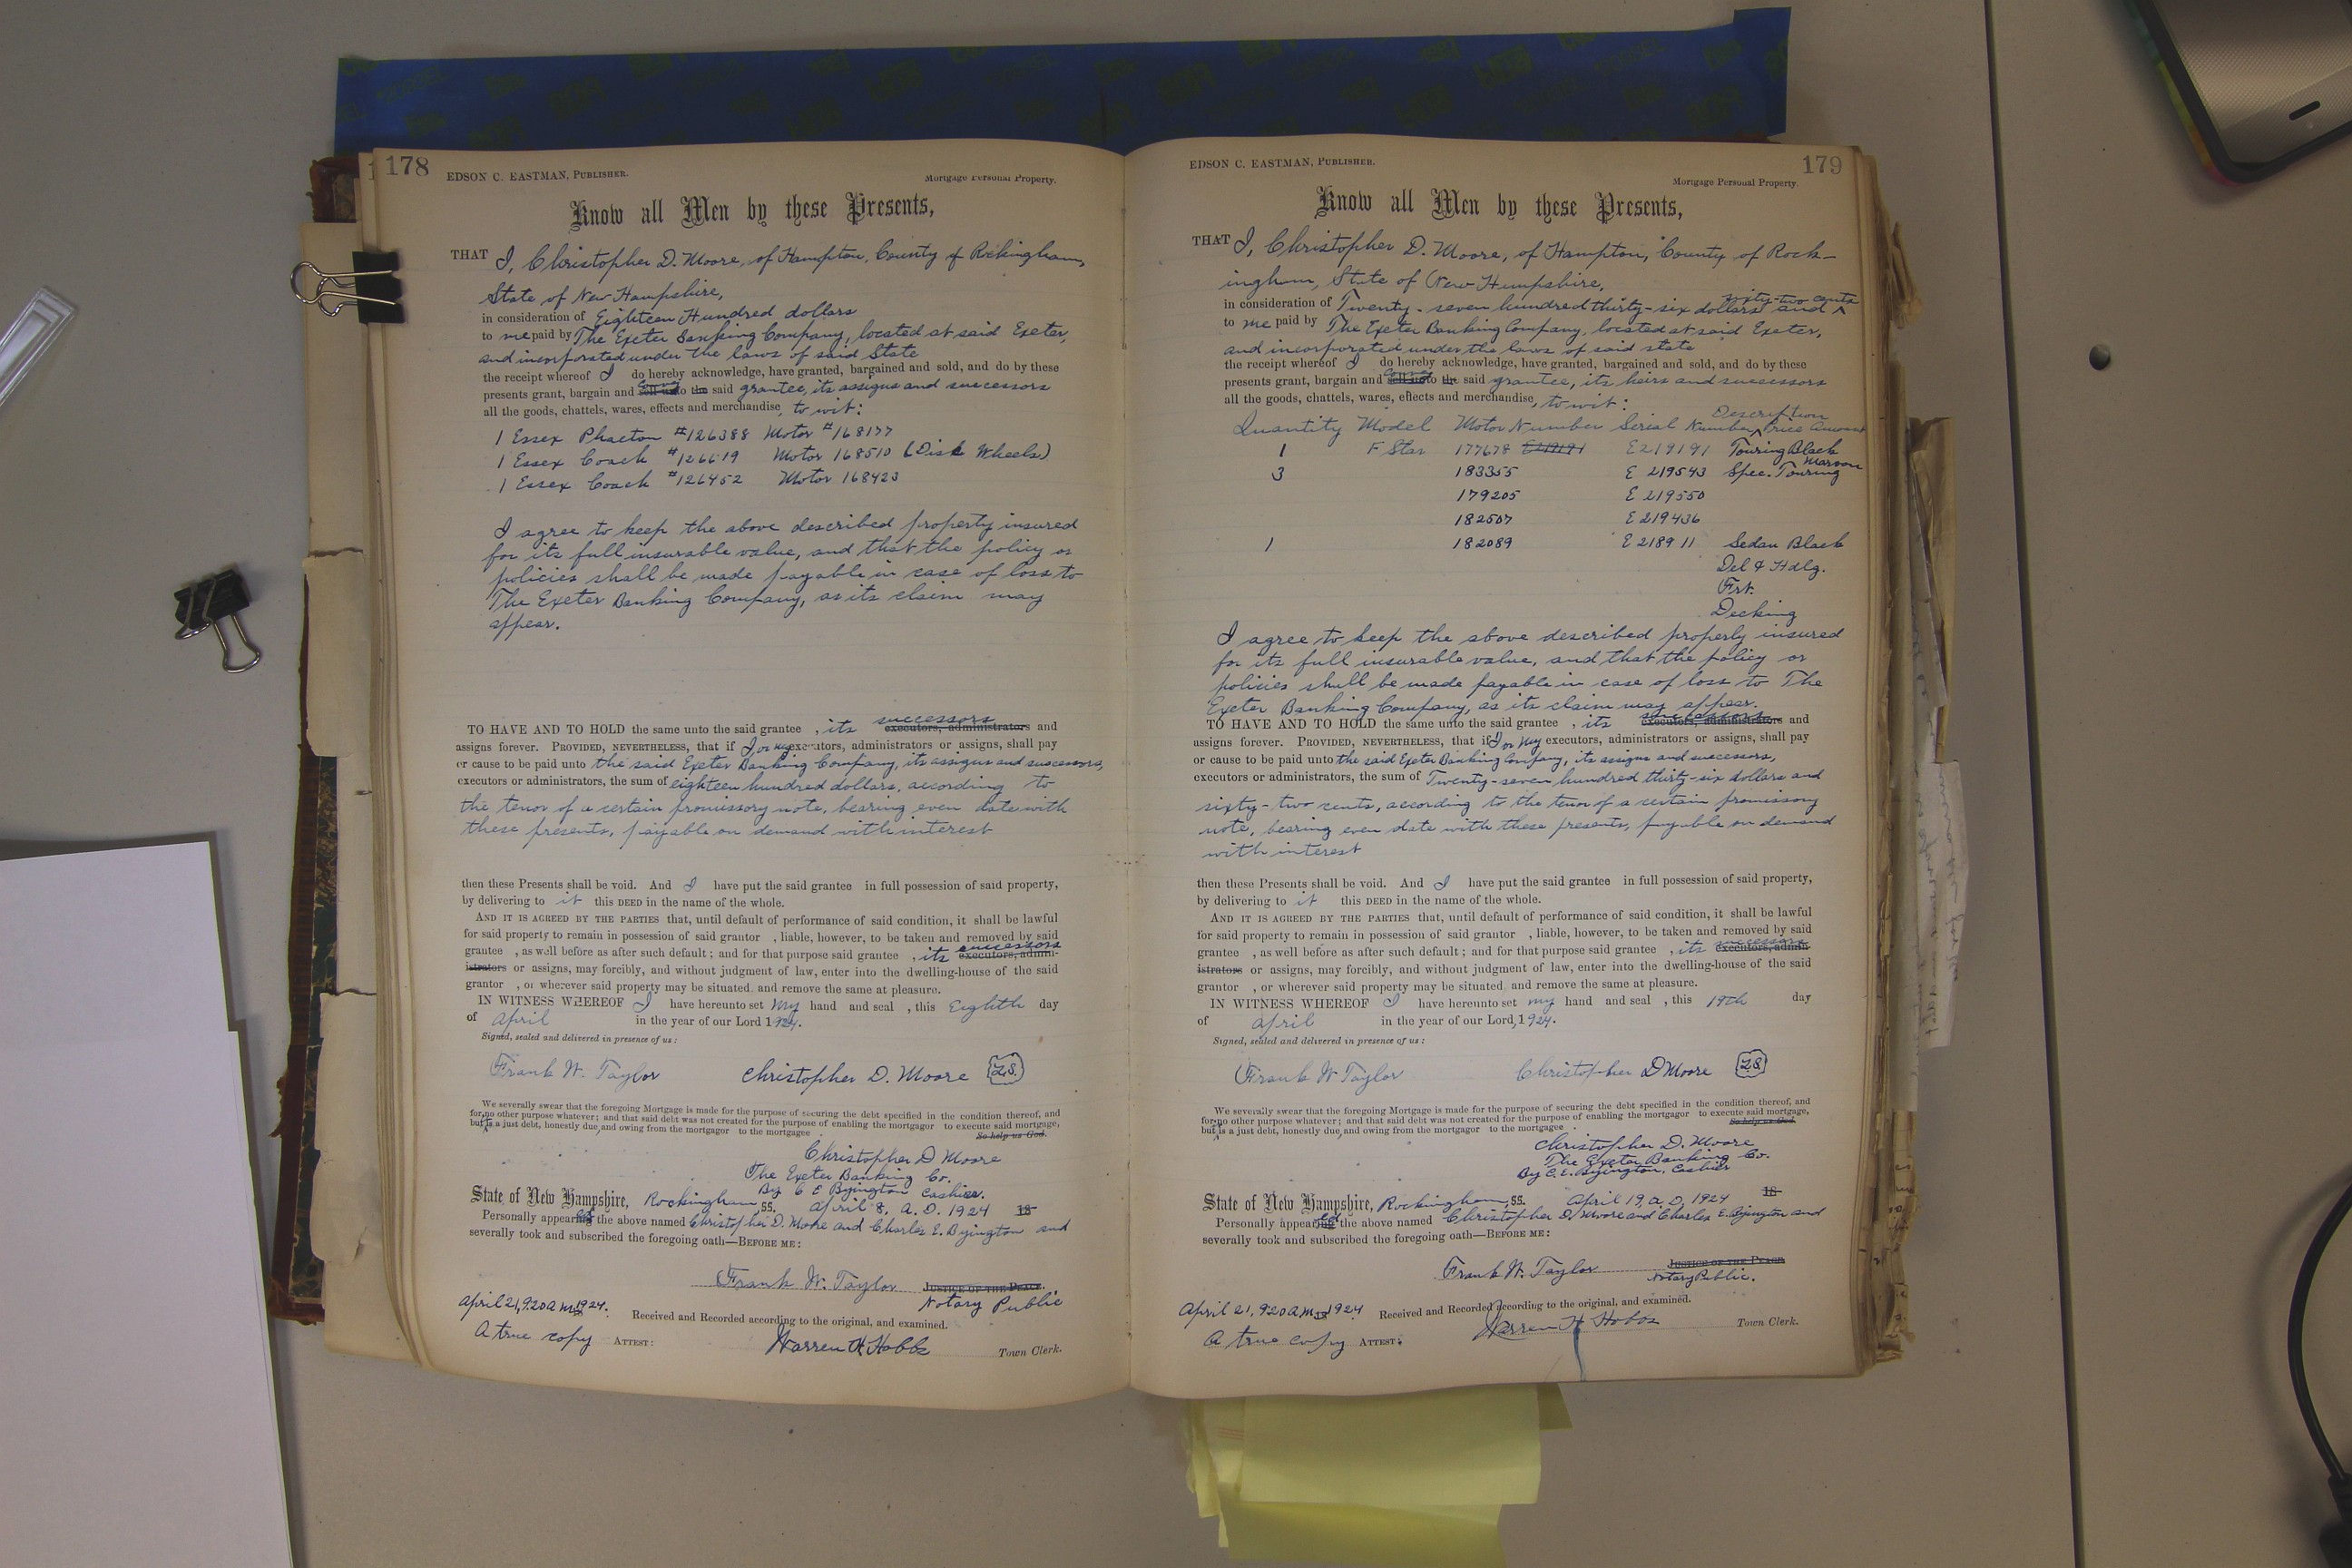 178
EDSON C. EASTMAN, PUBLISHER.
Mortgage Personal Property.
Know all Men by these Presents,
THAT I, Christopher D. Moore, of Hampton, County of Rockingham,
State of New Hampshire,
in consideration of Eighteen Hundred dollars
to me paid by The Exeter Banking Company, located at said Exeter,
and incorporated under the laws of said State
the receipt whereof I do hereby acknowledge, have granted, bargained and sold, and do by these
presents grant, bargain and sell unto the said grantee, its assigns and successors
all the goods, chattels, wares, effects and merchandise, to wit:
1 Essex Phaeton #126388 Motor #168177
1 Essex Coach #126619 Motor 168510 (Disk Wheels)
1 Essex Coach #126452 Motor 168423
I agree to keep the above described property insured
for its full insurable value, and that the policy or
policies shall be made payable in case of loss to
The Exeter Banking Company, as its claim may
appear.
successors
TO HAVE AND TO HOLD the same unto the said grantee , its executors, administrators and
assigns forever. PROVIDED, NEVERTHELESS, that if I or my executors, administrators or assigns, shall pay
or cause to be paid unto the said Exeter Banking Company, its assigns and successors,
executors or administrators, the sum of eighteen hundred dollars, according to
the tenor of a certain promissory note, bearing even date with
these presents, payable on demand with interest
then these Presents shall be void. And I have put the said grantee in full possession of said property,
by delivering to it this DEED in the name of the whole.
AND IT IS AGREED BY THE PARTIES that, until default of performance of said condition, it shall be lawful
for said property to remain in possession of said grantor , liable, however, to be taken and removed by said
successors
grantee , as well before as after such default; and for that purpose said grantee , its executors, admin-
istrators or assigns, may forcibly, and without judgment of law, enter into the dwelling-house of the said
grantor , or wherever said property may be situated, and remove the same at pleasure.
IN WITNESS WHEREOF I have hereunto set my hand and seal , this Eighth day
of April in the year of our Lord 1924.
Signed, sealed and delivered in presence of us:
Frank W. Taylor Christopher D. Moore L.S.
We severally swear that the foregoing Mortgage is made for the purpose of securing the debt specified in the condition thereof, and
for no other purpose whatever; and that said debt was not created for the purpose of enabling the mortgagor to execute said mortgage,
but is a just debt, honestly due and owing from the mortgagor to the mortgagee . So help us God.
Christopher D Moore
The Exeter Banking Co.
By C E Byington Cashier.
State of New Hampshire, Rockingham, SS. April 8, A. D. 1924 18
Personally appeared the above named Christopher D. Moore and Charles E. Byington and
severally took and subscribed the foregoing oath—BEFORE ME:
Frank W. Taylor JUSTICE OF THE PEACE.
Notary Public
April 21, 9.20 A M, 1924. Received and Recorded according to the original, and examined.
A true copy ATTEST: Warren H Hobbs Town Clerk.
179
EDSON C. EASTMAN, PUBLISHER.
Mortgage Personal Property.
Know all Men by these Presents,
THAT I, Christopher D. Moore, of Hampton, County of Rock-
ingham, State of New Hampshire,
sixty-two cents
in consideration of Twenty-seven hundred thirty-six dollars and ^
to me paid by The Exeter Banking Company, located at said Exeter,
and incorporated under the laws of said state
the receipt whereof I do hereby acknowledge, have granted, bargained and sold, and do by these
presents grant, bargain and sell unto the said grantee, its heirs and successors
all the goods, chattels, wares, effects and merchandise, to wit:
Description
Quantity Model Motor Number Serial Number ^ Price Amount
1 F Star 177678 E219191 E219191 Touring Black
Maroon
3 183355 E 219543 Spec. Touring
179205 E 219550
182507 E 219436
1 182089 E 218911 Sedan Black
Del & Hdlg.
Frt.
Decking
I agree to keep the above described property insured
for its full insurable value, and that the policy or
policies shall be made payable in case of loss to The
Exeter Banking Company, as its claim may appear.
successors
TO HAVE AND TO HOLD the same unto the said grantee , its executors, administrators and
assigns forever. PROVIDED, NEVERTHELESS, that if I or my executors, administrators or assigns, shall pay
or cause to be paid unto the said Exeter Banking Company, its assigns and successors,
executors or administrators, the sum of Twenty-seven hundred thirty-six dollars and
sixty-two cents, according to the tenor of a certain promissory
note, bearing even date with these presents, payable on demand
with interest
then these Presents shall be void. And I have put the said grantee in full possession of said property,
by delivering to it this DEED in the name of the whole.
AND IT IS AGREED BY THE PARTIES that, until default of performance of said condition, it shall be lawful
for said property to remain in possession of said grantor , liable, however, to be taken and removed by said
successors
grantee , as well before as after such default; and for that purpose said grantee , its executors, admin-
istrators or assigns, may forcibly, and without judgment of law, enter into the dwelling-house of the said
grantor , or wherever said property may be situated, and remove the same at pleasure.
IN WITNESS WHEREOF I have hereunto set my hand and seal , this 19th day
of April in the year of our Lord, 1924.
Signed, sealed and delivered in presence of us:
Frank W Taylor Christopher D Moore L.S.
We severally swear that the foregoing Mortgage is made for the purpose of securing the debt specified in the condition thereof, and
for no other purpose whatever; and that said debt was not created for the purpose of enabling the mortgagor to execute said mortgage,
but is a just debt, honestly due, and owing from the mortgagor to the mortgagee . So help us God.
Christopher D. Moore
The Exeter Banking Co.
By C. E. Byington, Cashier
State of New Hampshire, Rockingham, SS. April 19, A. D. 1924 18
Personally appeared the above named Christopher D. Moore and Charles E. Byington and
severally took and subscribed the foregoing oath—BEFORE ME:
Frank W. Taylor JUSTICE OF THE PEACE
Notary Public.
April 21, 9.20 A M, 1924 Received and Recorded according to the original, and examined.
A true copy ATTEST: Warren H Hobbs Town Clerk.